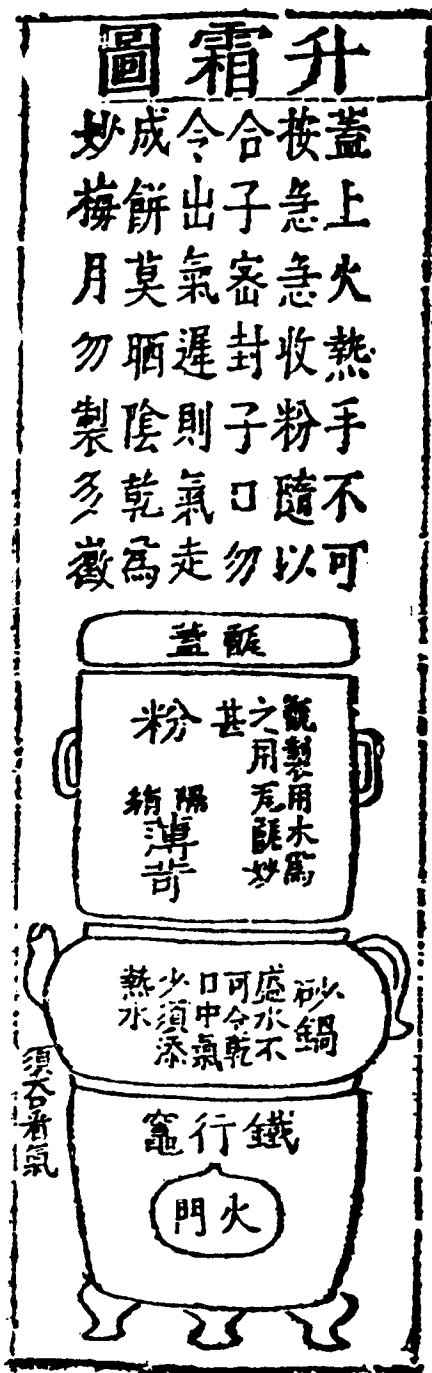 升霜圖
蓋上火熱手不可
按急急收粉隨以
合子密封子口勿
令出氣遲則氣走
成餅莫晒陰乾為
妙梅月勿製多黴
甑蓋
甑製用木爲
之用瓦甑妙
甚
粉
隔稍
薄荷
砂鍋
盛水不
可令乾
口中氣
少須添
熱水
須吞看氣
鐵行竈
火門